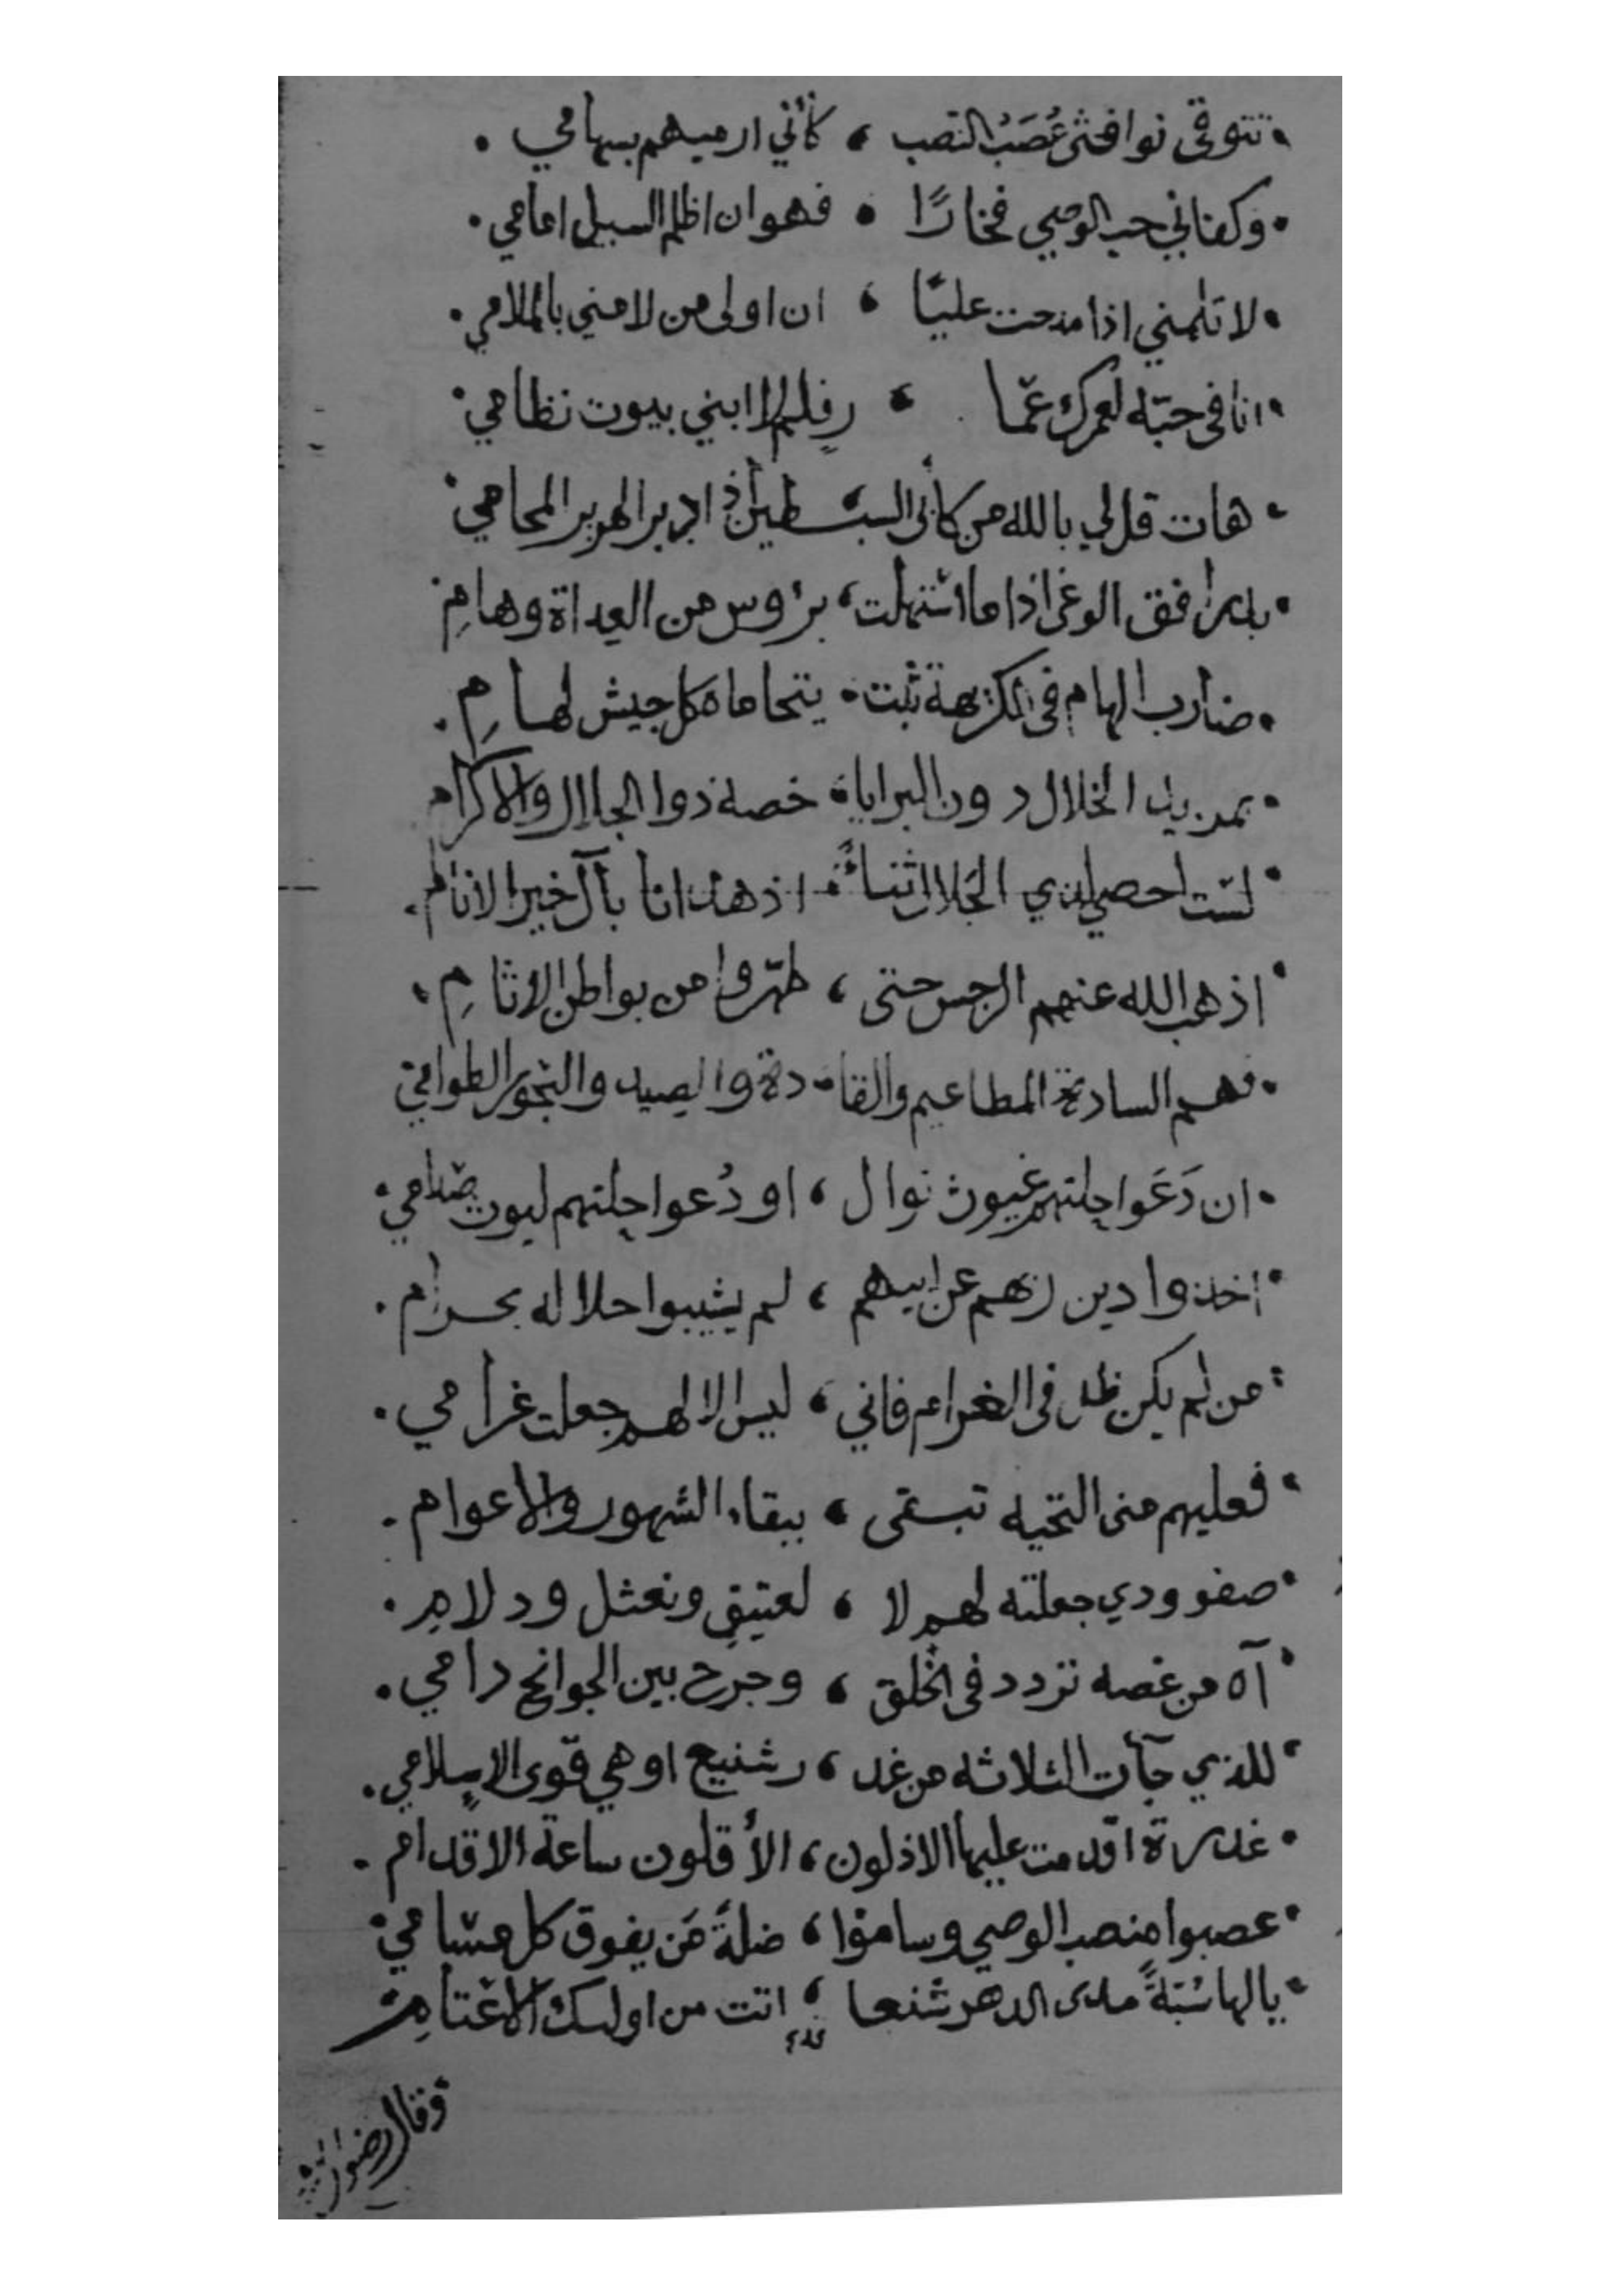 تتوقى نوافثي عُصَبُ النصب ، كأني ارميهم بسهامي .
وكفاني حب الوصي فخارًا ، فهو ان اظلم السبيل امامي .
لا تلمني اذا مدحت عليًّا ، ان اولى من لامني بالملامي .
انا في حبّه لعمرك عمّا ، رٍ فلم لا ابني بيوت نظامي
هات قل لي بالله من كأبي السبطين اذ ادبر الهزبر المحامي
بدر افق الوغى اذا ما استهلت ، برؤس من العداة وهامِ
ضارب الهام في الكريهة ثبت . يتحاماه كل جيش لهامِ .
بمزيد الخلال دون البرايا ، خصه ذوا الجلال والاكرام
لست احصي لذي الجلال ثناءً . اذ هدانا بآل خير الانام .
اذهب الله عنهم الرجس حتى ، طهّروا من بواطن الاثامِ .
فهم السادة المطاعيم والقا . دة والصيد والبحور الطوامي
ان دَعَوا خلتهم غيوث نوال ، او دُعوا خلتهم ليوث صدامي .
اخذوا دين ربهم عن ابيهم ، لم يشيبوا حلاله بحرام .
من لم يكن ظل في الغرام فاني ، ليس الا لهم جعلت غرامي .
فعليهم مني التحيه تبقى ، ببقاء الشهور والاعوام .
صفو ودي جعلته لهم لا ، لعتيقٍ ونعثل ودلامِ .
آه من غصه تردد في الحلق ، وجرح بين الجوانح دامي .
للذي جآت الثلاثه من غد ، ر شنيع اوهي قوى الاسلامي .
غدرة اقدمت عليها الاذلون ، الأقلون ساعة الاقدام .
عصبوا منصب الوصي وساموا ، ضلةً مَن يفوق كل مسامي
يالها سُبّةً مدى الدهر شنعا ، ء اتت من اوليك الاغتامِ
وقال رضوان الله